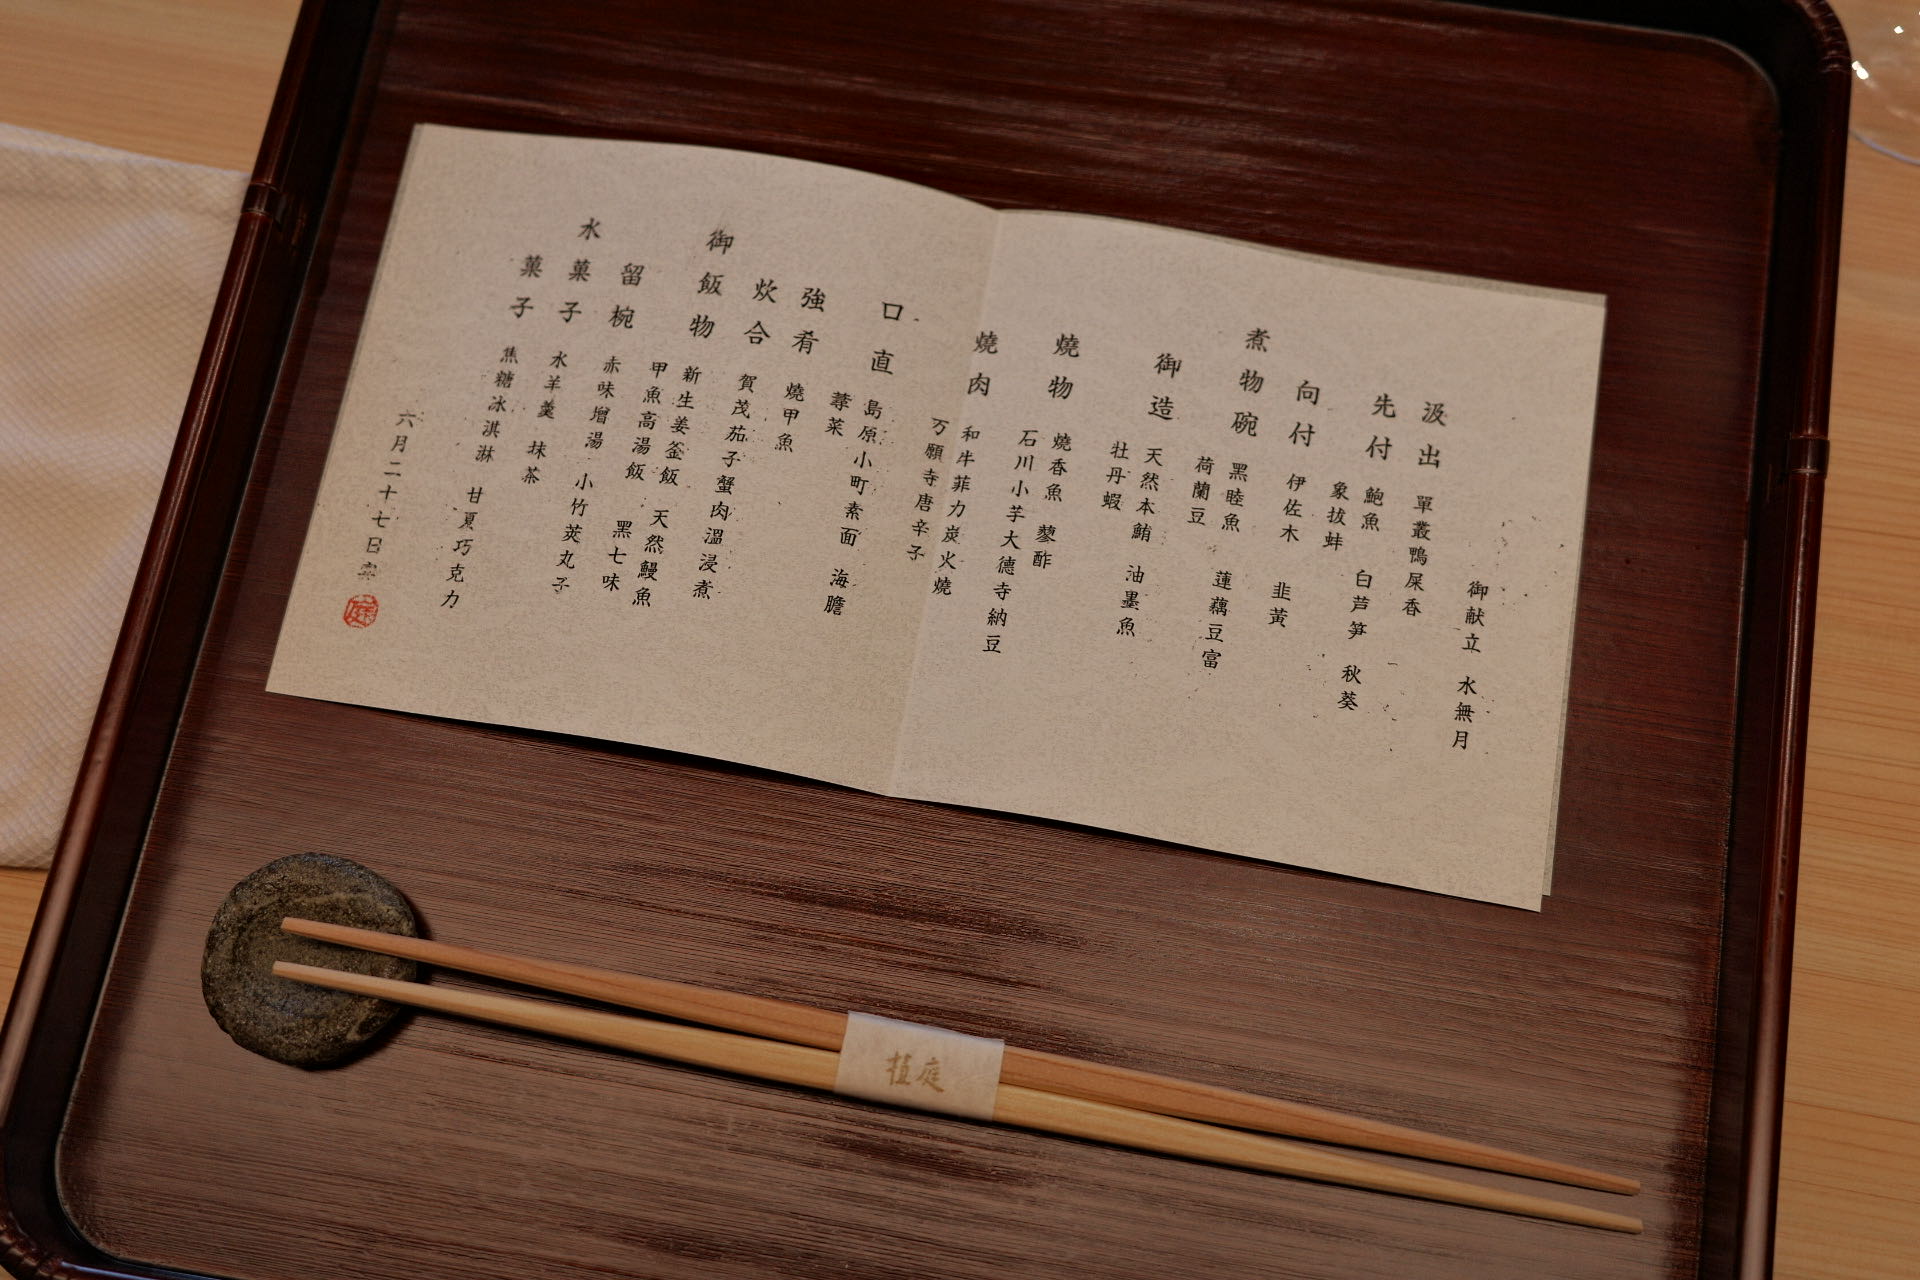 御献立 水無月
汲出 單叢鴨屎香
先付 鮑魚 白芦笋 秋葵
象拔蚌
向付 伊佐木 韭黃
煮物碗 黑睦魚 蓮藕豆富
荷蘭豆
御造 天然本鮪 油墨魚
牡丹蝦
燒物 燒香魚 蓼酢
石川小芋大德寺納豆
燒肉 和牛菲力炭火燒
万願寺唐辛子
口直 島原小町素面 海膽
蓴菜
強肴 燒甲魚
炊合 賀茂茄子蟹肉溫浸煮
御飯物 新生姜釜飯 天然鰻魚
甲魚高湯飯 黑七味
留椀 赤味增湯 小竹莢丸子
水菓子 水羊羹 抹茶
菓子 焦糖冰淇淋 甘夏巧克力
六月二十七日
庭
植庭